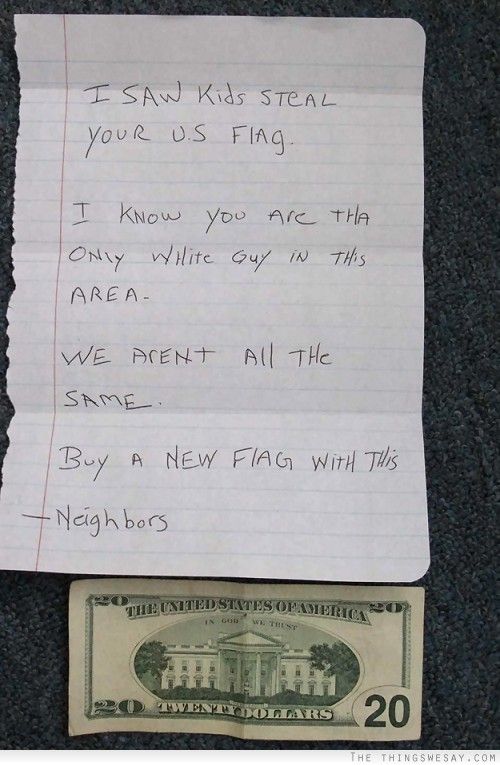 I SAW Kids STEAL
YOUR U.S FlAg.
I KNOW you Are THA
ONly WHite Guy IN THis
AREA-
WE ArENt All THe
SAME.
Buy A NEW FlAG WitH THis
- Neighbors
20 THE UNITED STATES OF AMERICA 20
IN GOD WE TRUST
20 TWENTY DOLLARS 20
THE THINGSWESAY.COM